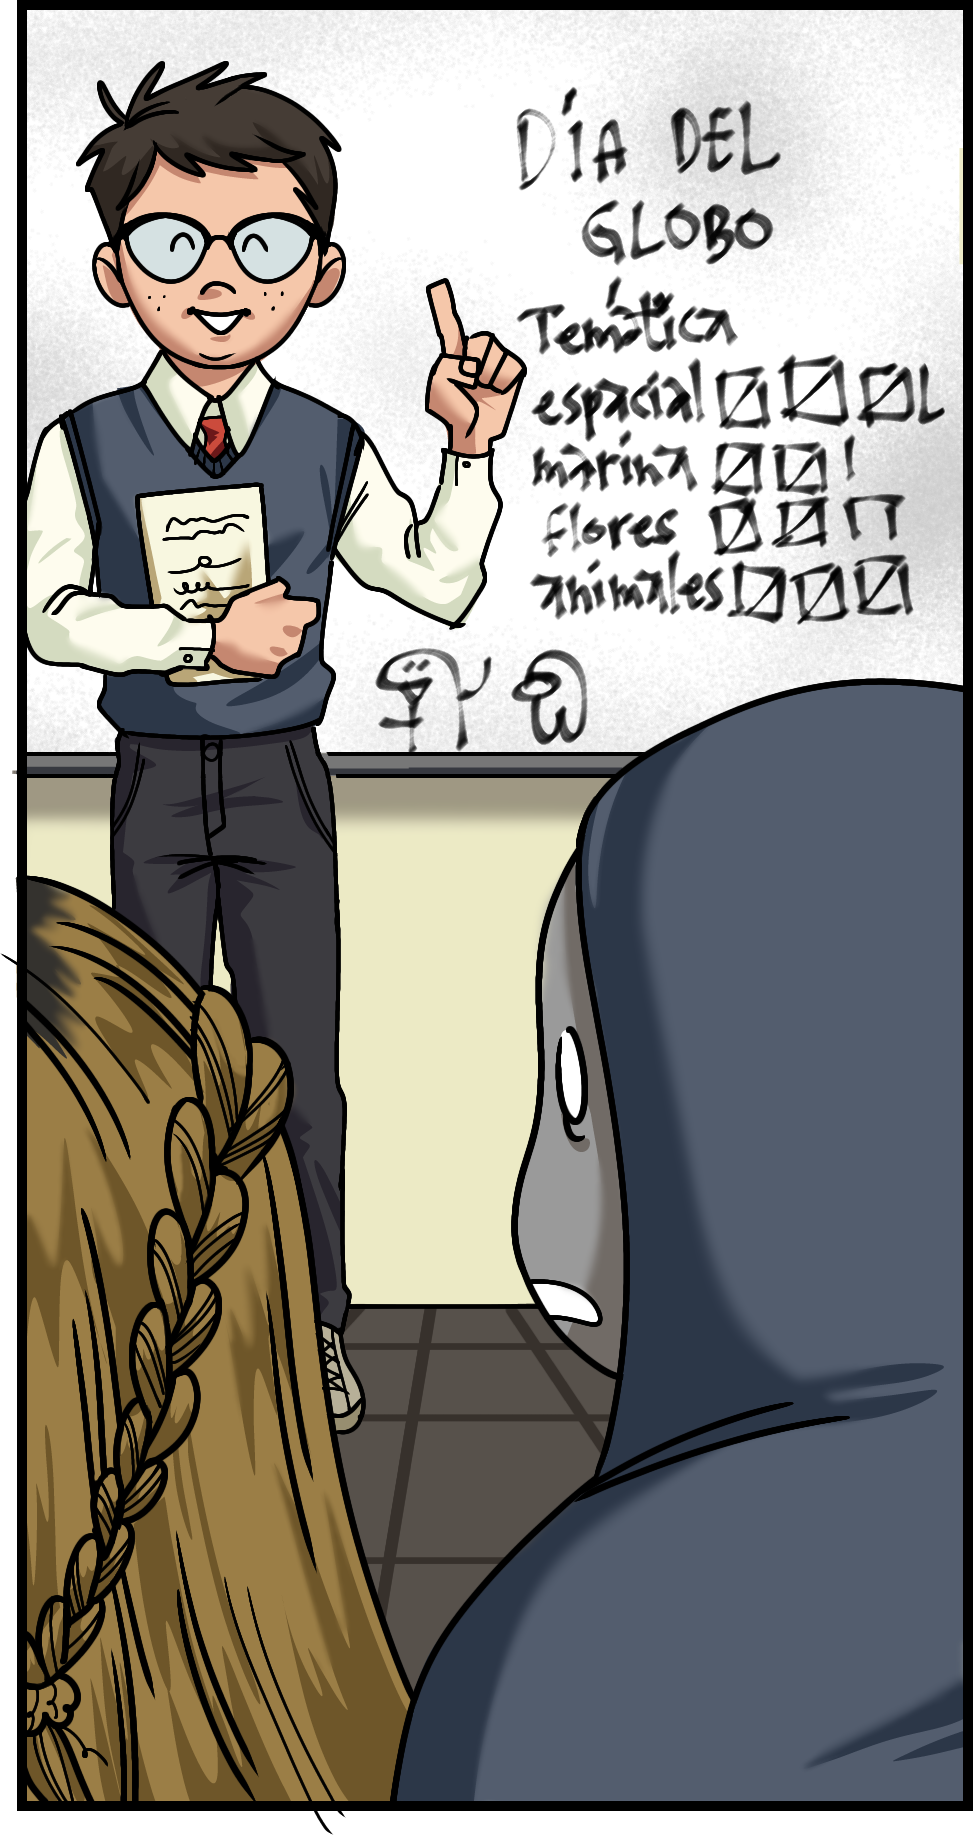 DÍA DEL
GLOBO
Temática
espacial
marina
flores
animales